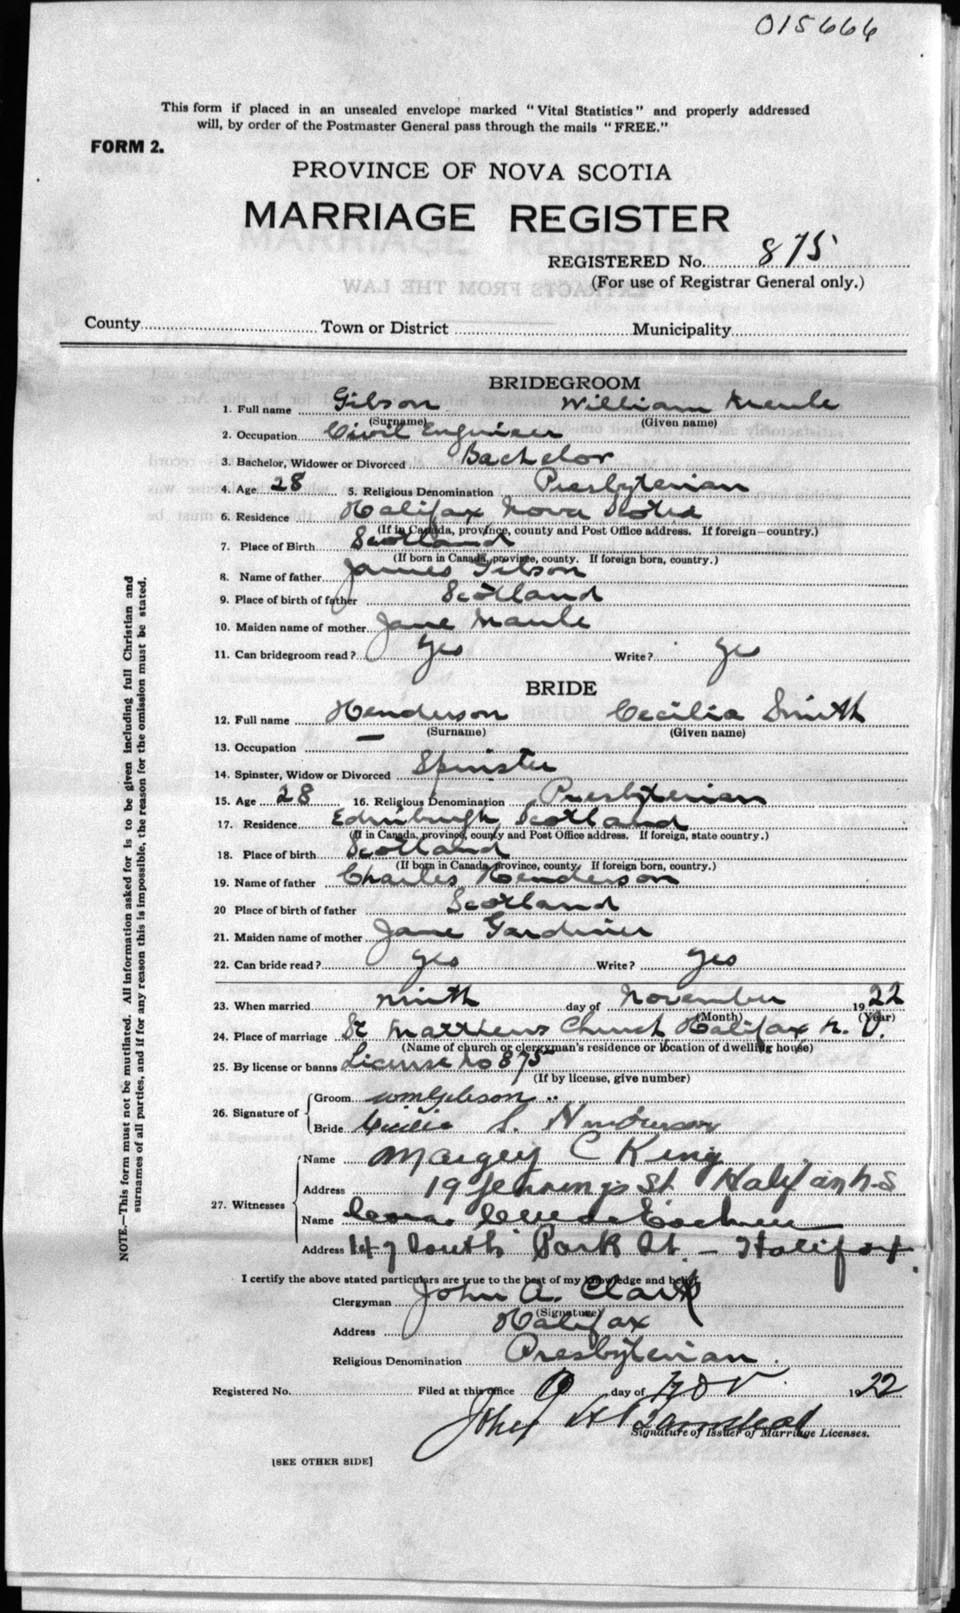 015666
This form if placed in an unsealed envelope marked "Vital Statistics" and properly addressed
will, by order of the Postmaster General pass through the mails "FREE."
FORM 2.
PROVINCE OF NOVA SCOTIA
MARRIAGE REGISTER
REGISTERED No. 875
(For use of Registrar General only.)
County Town or District Municipality
BRIDEGROOM
1. Full name Gibson William Maule
(Surname) (Given name)
2. Occupation Civil Engineer
3. Bachelor, Widower or Divorced Bachelor
4. Age 28 5. Religious Denomination Presbyterian
6. Residence Halifax Nova Scotia
(If in Canada, province, county and Post Office address. If foreign—country.)
7. Place of Birth Scotland
(If born in Canada, province, county. If foreign born, country.)
8. Name of father James Gibson
9. Place of birth of father Scotland
10. Maiden name of mother Jane Maule
11. Can bridegroom read? Yes Write? Yes
BRIDE
12. Full name Henderson Cecilia Smith
(Surname) (Given name)
13. Occupation —
14. Spinster, Widow or Divorced Spinster
15. Age 28 16. Religious Denomination Presbyterian
17. Residence Edinburgh, Scotland
(If in Canada, province, county and Post Office address. If foreign, state country.)
18. Place of birth Scotland
(If born in Canada, province, county. If foreign born, country.)
19. Name of father Charles Henderson
20 Place of birth of father Scotland
21. Maiden name of mother Jane Gardiner
22. Can bride read? Yes Write? Yes
23. When married ninth day of November 1922
(Month) (Year)
24. Place of marriage St Matthews Church Halifax N. S.
(Name of church or clergyman's residence or location of dwelling house)
25. By license or banns License No 875
(If by license, give number)
26. Signature of Groom Wm Gibson
Bride Cecilia S. Henderson
27. Witnesses Name Margery C King
Address 19 Jennings St Halifax N.S
Name
Address 147 South Park St – Halifax.
I certify the above stated particulars are true to the best of my knowledge and belief.
Clergyman John A. Clark
(Signature)
Address Halifax
Religious Denomination Presbyterian.
Registered No. Filed at this office 9 day of Nov 1922
John H
Signature of Issuer of Marriage Licenses.
[SEE OTHER SIDE]
NOTE.—This form must not be mutilated. All information asked for is to be given including full Christian and
surnames of all parties, and if for any reason this is impossible, the reason for the omission must be stated.